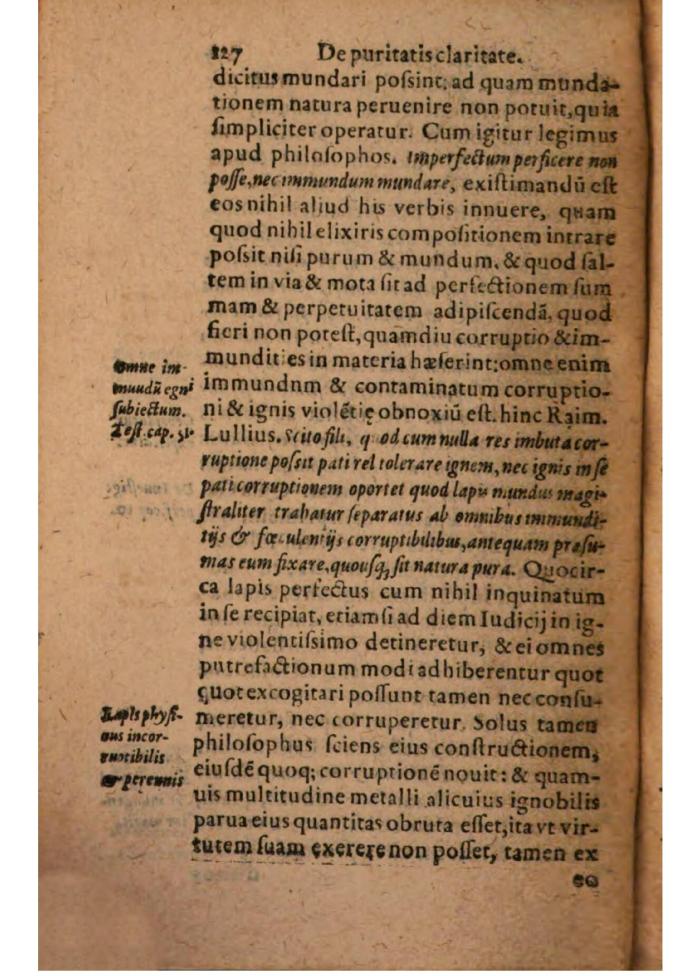 127 De puritatis claritate.
dicitus mundari poſsint: ad quam munda-
tionem natura peruenire non potuit, quia
ſimpliciter operatur. Cum igitur legimus
apud philoſophos. imperfectum perficere non
poſſe, nec immundum mundare, exiſtimandū eſt
eos nihil aliud his verbis innuere, quam
quod nihil elixiris compoſitionem intrare
poſsit niſi purum & mundum, & quod ſal-
tem in via & mota ſit ad perfectionem ſum
mam & perpetuitatem adipiſcendā, quod
fieri non poteſt, quamdiu corruptio & im-
mundities in materia hæſerint: omne enim
immundnm & contaminatum corruptio-
ni & ignis violētię obnoxiū eſt. hinc Raim.
Lullius. Scito fili, quod cum nulla res imbuta cor-
ruptione poſsit pati vel tolerare ignem, nec ignis in ſe
pati corruptionem oportet quod lapis mundus magi-
ſtraliter trahatur ſeparatus ab omnibus immundi-
tijs & fœculentijs corruptibilibus, antequam præſu-
mas eum fixare, quouſq, ſit natura pura. Quocir-
ca lapis perfectus cum nihil inquinatum
in ſe recipiat, etiamſi ad diem Iudicij in ig-
ne violentiſsimo detineretur, & ei omnes
putrefactionum modi adhiberentur quot
quot excogitari poſſunt tamen nec conſu-
meretur, nec corruperetur. Solus tamen
philoſophus ſciens eius conſtructionem,
eiuſdē quoq; corruptionē nouit: & quam-
uis multitudine metalli alicuius ignobilis
parua eius quantitas obruta eſſet, ita vt vir-
tutem ſuam exerere non poſſet, tamen ex
eo
Omne im-
mundū egni
ſubiectum.
Teſt. cap. 51.
Lapis phyſi-
cus incor-
ruptibilis
& perennis